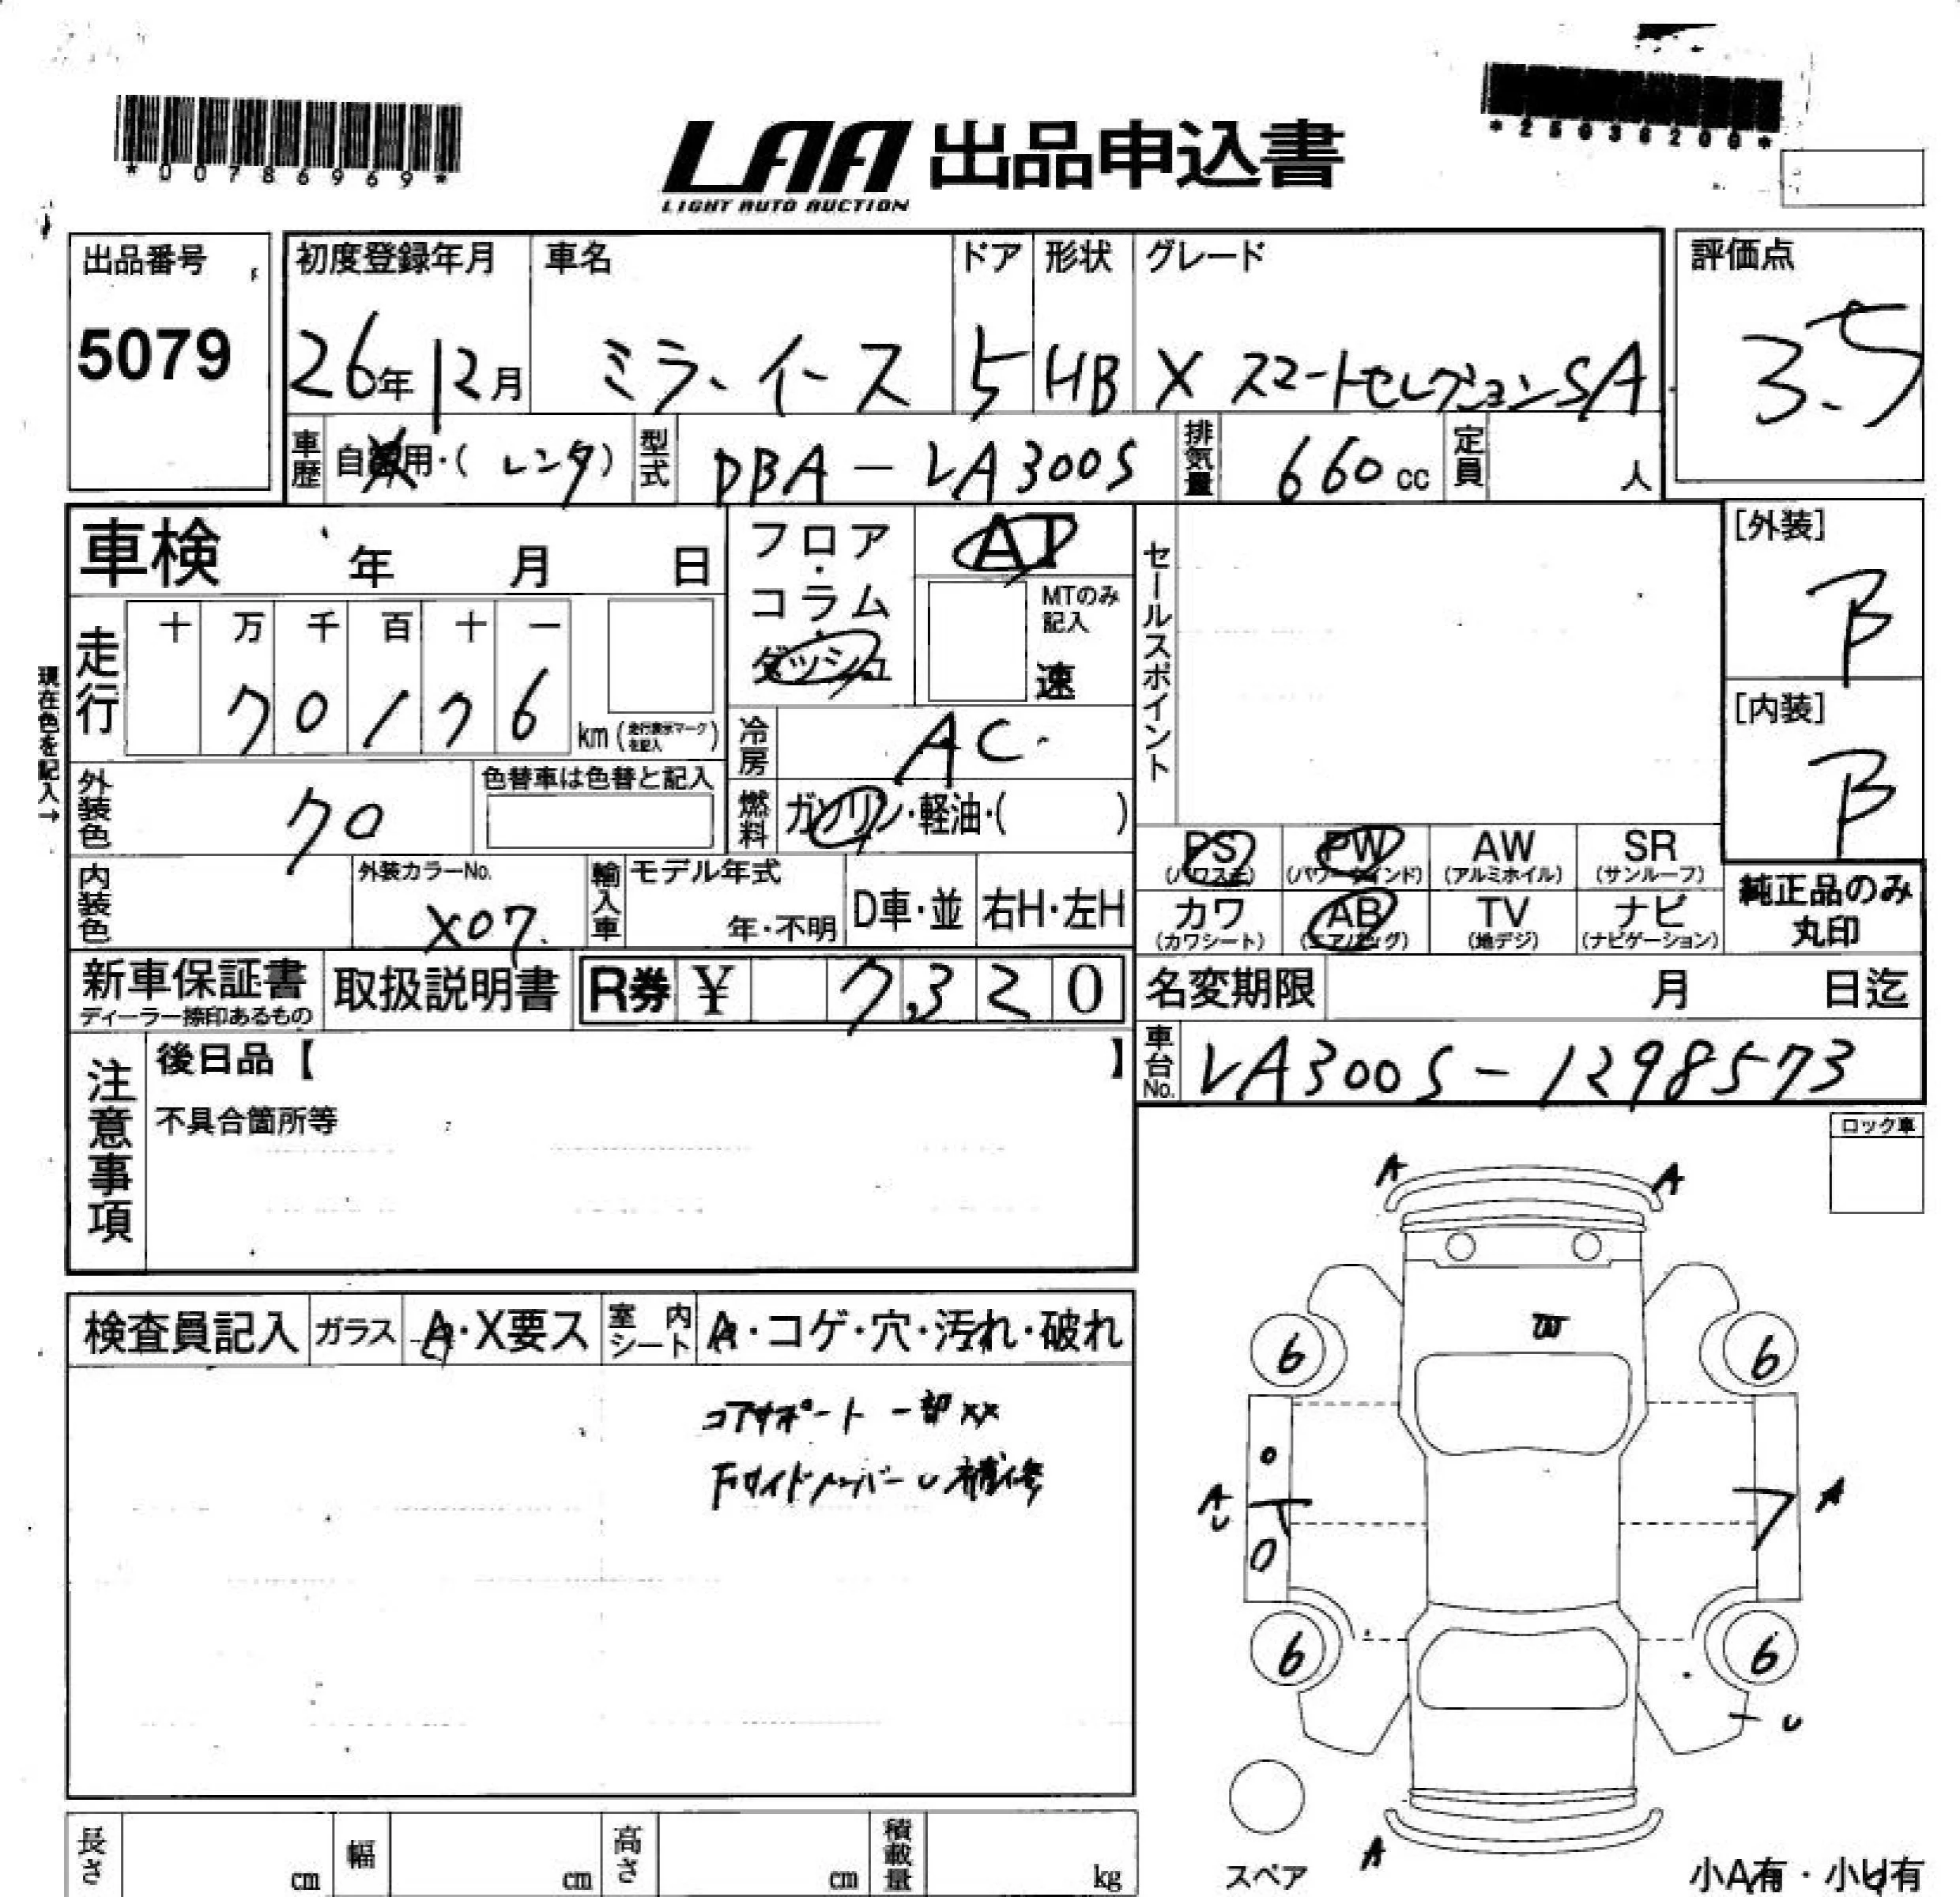 *00786969*
LAA 出品申込書
LIGHT AUTO AUCTION
*25036200*
出品番号
5079
初度登録年月
26年12月
車名
ミライース
ドア
5
形状
HB
グレード
X スマートセレクションSA
評価点
3.5
車歴
自家用・(レンタ)
型式
DBA-LA300S
排気量
660cc
定員
人
車検
年 月 日
フロア・コラム・ダッシュ
AT
MTのみ記入
速
セールスポイント
[外装]
B
[内装]
B
現在色を記入→
走行
十 万 千 百 十 一
7 0 1 7 6
km (走行表示マークを記入)
冷房
AC
外装色
クロ
色替車は色替と記入
燃料
ガソリン・軽油・( )
PS (パワステ)
PW (パワーウインド)
AW (アルミホイル)
SR (サンルーフ)
内装色
外装カラーNo.
X07
輸入車
モデル年式
年・不明
D車・並
右H・左H
カワ (カワシート)
AB (エアバッグ)
TV (地デジ)
ナビ (ナビゲーション)
純正品のみ丸印
新車保証書
ディーラー捺印あるもの
取扱説明書
R券 ¥ 7,320
名変期限
月 日迄
車台No.
LA300S-1298573
注意事項
後日品【 】
不具合箇所等
ロック車
検査員記入
ガラス
A・X要ス
室内シート
A・コゲ・穴・汚れ・破れ
コアサポート 一部 XX
Fサイドメンバー U 補修
A A
W
6 6
A
U
A
6 6
U
A
スペア
小A有・小U有
長さ
cm
幅
cm
高さ
cm
積載量
kg